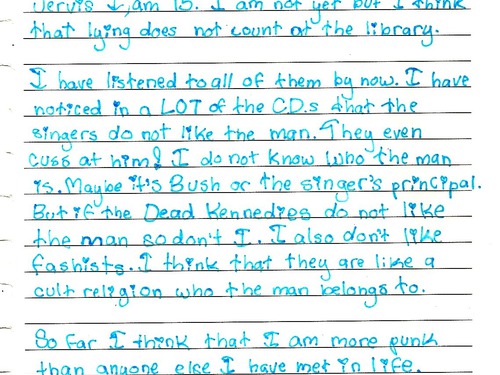 I am 13. I am not yet but I think
that lying does not count at the library.
I have listened to all of them by now. I have
noticed in a LOT of the C.D.s that the
singers do not like the man. They even
cuss at him! I do not know who the man
is. Maybe it's Bush or the singer's principal.
But if the Dead Kennedies do not like
the man so don't I. I also don't like
fashists. I think that they are like a
cult religion who the man belongs to.
So far I think that I am more punk
than anyone else I have met in life.